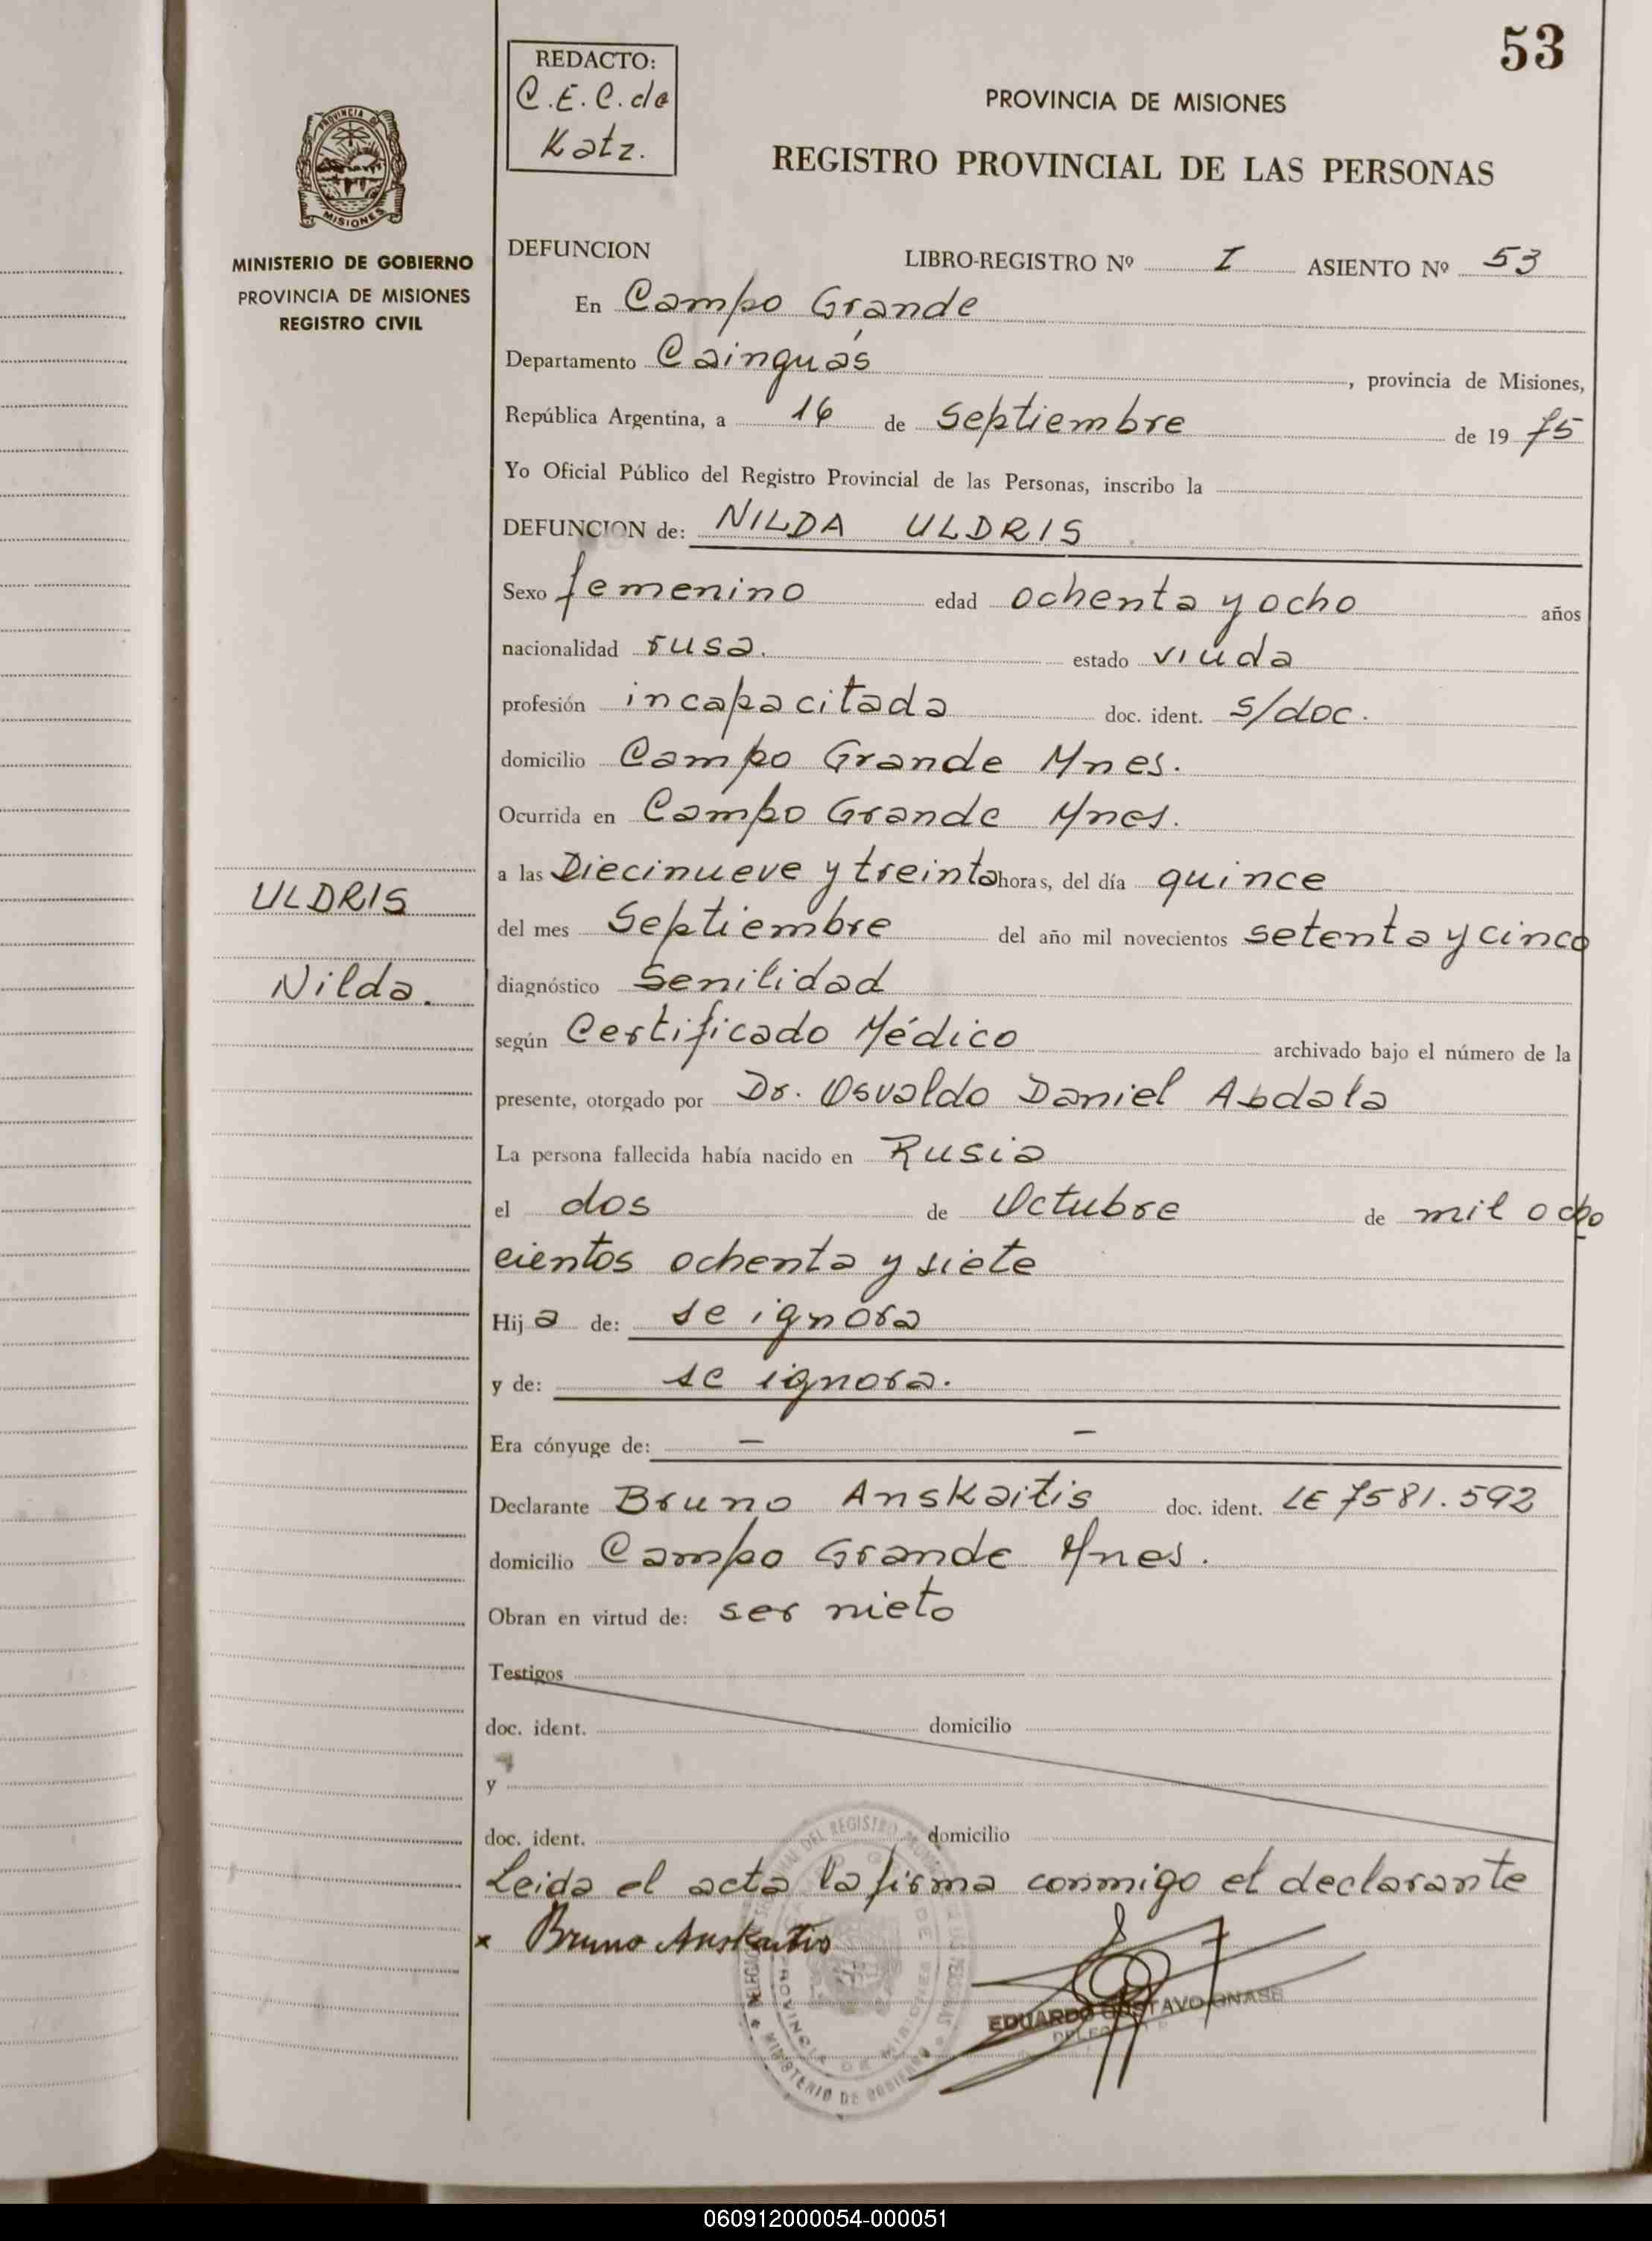 53
REDACTO:
C.E.C. de
Katz.
PROVINCIA DE MISIONES
REGISTRO PROVINCIAL DE LAS PERSONAS
PROVINCIA DE
MISIONES
MINISTERIO DE GOBIERNO
PROVINCIA DE MISIONES
REGISTRO CIVIL
DEFUNCION LIBRO-REGISTRO Nº I ASIENTO Nº 53
En Campo Grande
Departamento Cainguás, provincia de Misiones,
República Argentina, a 16 de Septiembre de 1975
Yo Oficial Público del Registro Provincial de las Personas, inscribo la
DEFUNCION de: NILDA ULDRIS
Sexo femenino edad ochenta y ocho años
nacionalidad rusa. estado viuda
profesión incapacitada doc. ident. s/doc.
domicilio Campo Grande Mnes.
Ocurrida en Campo Grande Mnes.
a las Diecinueve y treinta horas, del día quince
ULDRIS
del mes Septiembre del año mil novecientos setenta y cinco
Nilda.
diagnóstico Senilidad
según Certificado Médico archivado bajo el número de la
presente, otorgado por Dr. Osvaldo Daniel Abdala
La persona fallecida había nacido en Rusia
el dos de Octubre de mil ocho
cientos ochenta y siete
Hija de: se ignora
y de: se ignora.
Era cónyuge de: — —
Declarante Bruno Anskaitis doc. ident. LE 7581.592
domicilio Campo Grande Mnes.
Obran en virtud de: ser nieto
Testigos
doc. ident. domicilio
y
doc. ident. domicilio
Leida el acta la firma conmigo el declarante
x Bruno Anskaitis
EDUARDO GUSTAVO
MINISTERIO DE GOBIERNO
060912000054-000051